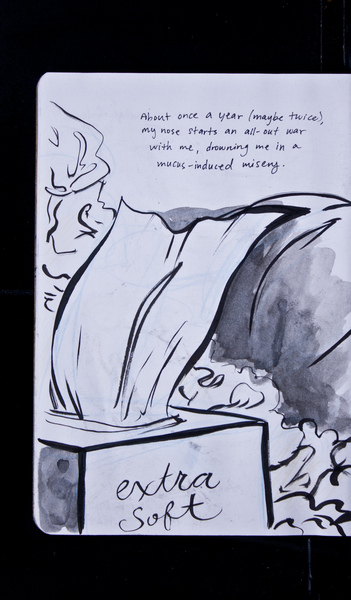 About once a year (maybe twice),
my nose starts an all-out war
with me, drowning me in a
mucus-induced misery.
extra
soft